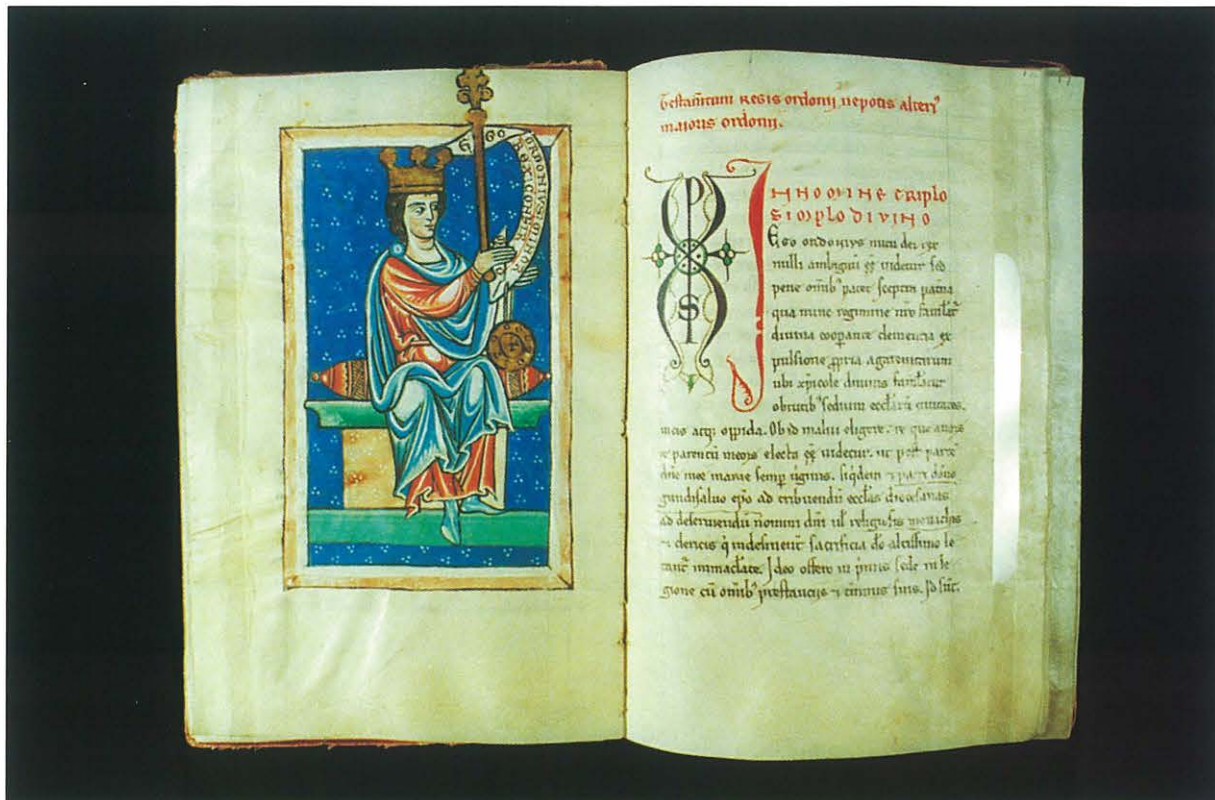 EGO
ORDONIUS MINOR
REX CONFIR
Testamtum regis ordonii nepotis alterꝰ
maioris ordonii.
IN NOMINE TRIPLO
SIMPLO DIVINO
Ego ordonius nutu dei rex
nulli ambiguū eē videtur sed
pene omibꝰ patet sceptra patria
qua nunc regimine nr̄o famlat᷑
divina coopante clemencia ex
pulsione ꝓpria agarenicarum
ubi xp̄icole divinis famlant᷑
obtutibꝰ sedium eccl̄arū civitates
atqꝫ oppida. Ob id malui eligere
parentū meoꝝ electa eē videtur. ut post partē
dn̄e mee marie semp ṽginis. siq̇dem ⁊ patri dōno
gundisalvo ep̄o ad tribuendū eccl̄as diocesanas
ad deserviendū nomini dn̄i ul̄ religiosis monachis
⁊ clericis q̇ indesinent᷑ sacrificia dō altissimo le
tant᷑ inmaclate. Ideo offero in p̓mis sede in le
gione cū omibꝰ prestanciis ⁊ suis. Id sūt.